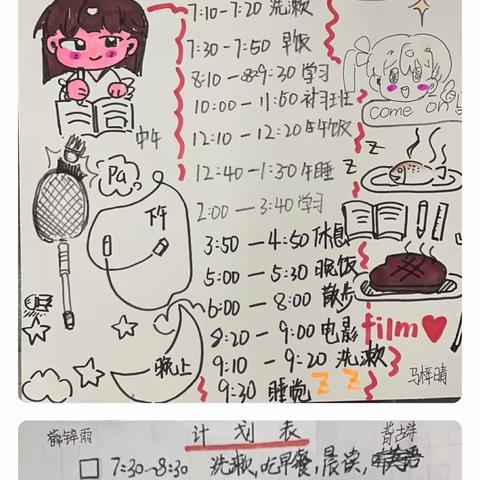 7:10-7:20 洗漱
7:30-7:50 早饭
8:10-9:30 学习
10:00-11:50 补习班
中午
12:10-12:20 午饭
come on!
12:40-1:30 午睡
z
z
Pa
2:00-3:40 学习
下午
3:50-4:50 休息
5:00-5:30 晚饭
6:00-8:00 散步
8:20-9:00 电影 film
晚上
9:10-9:20 洗漱
9:30 睡觉 z z
马梓晴
薛锌雨
计划表
7:30-8:30 洗漱,吃早餐,晨读,英语